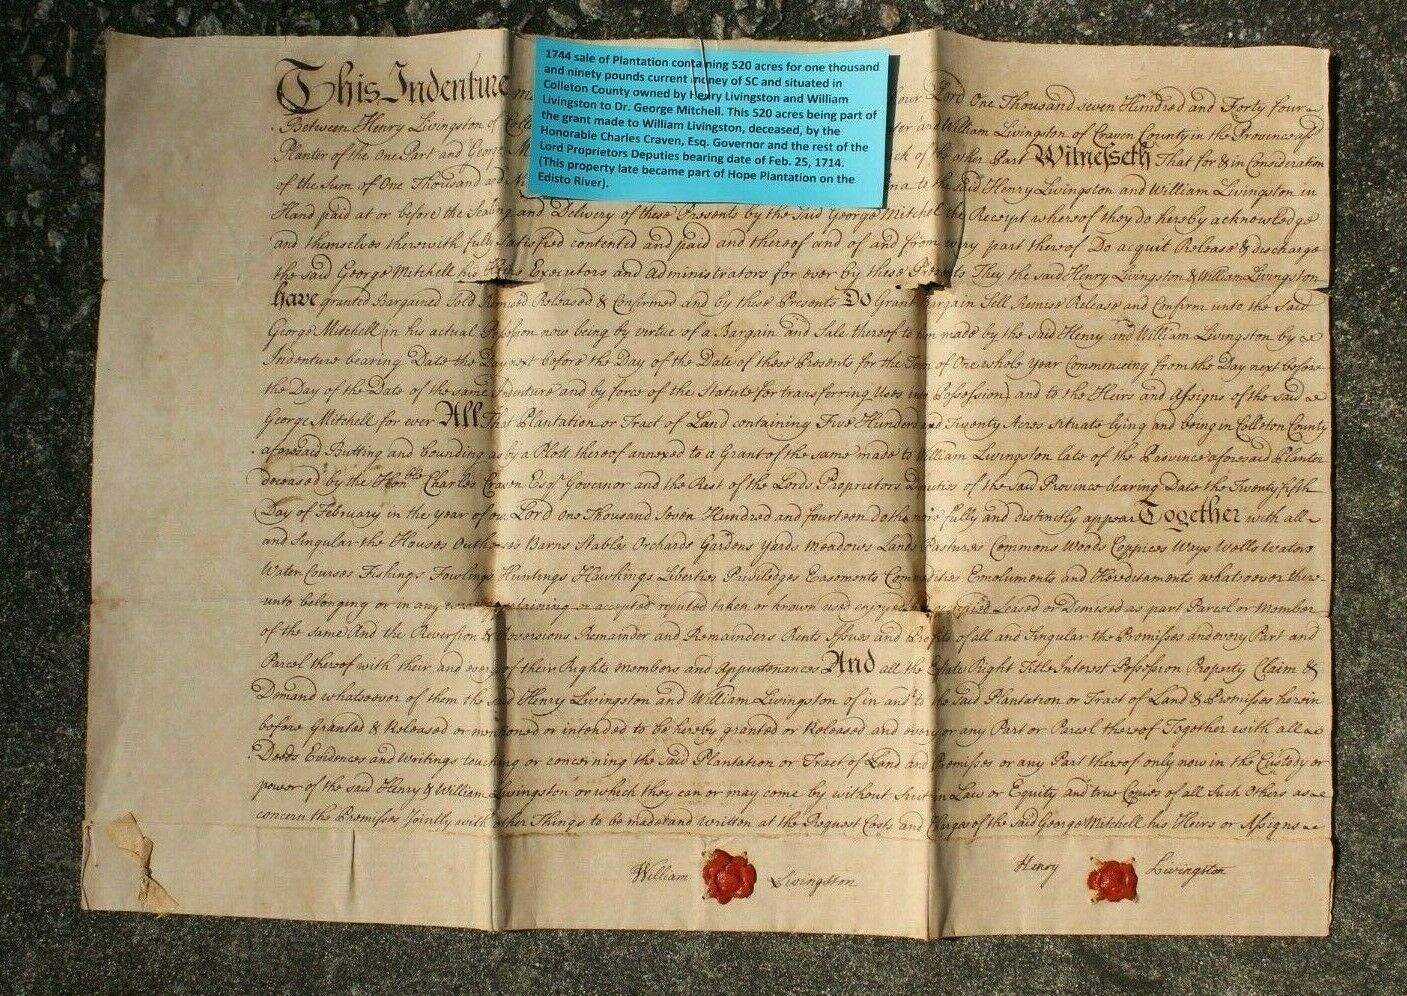 1744 sale of Plantation containing 520 acres for one thousand
and ninety pounds current money of SC and situated in
Colleton County owned by Henry Livingston and William
Livingston to Dr. George Mitchell. This 520 acres being part of
the grant made to William Livingston, deceased, by the
Honorable Charles Craven, Esq. Governor and the rest of the
Lord Proprietors Deputies bearing date of Feb. 25, 1714.
(This property late became part of Hope Plantation on the
Edisto River).
This Indenture our Lord One Thousand seven Hundred and Forty four
Between Henry Livingston of and William Livingston of Craven County in the Province affd
Planter of the One Part and George of the other Part Witnesseth That for & in Consideration
of the Sum of One Thousand and to the said Henry Livingston and William Livingston in
Hand paid at or before the Sealing and Delivery of these Presents by the said George Mitchel the Receipt whereof they do hereby acknowledge
and themselves therewith fully satisfied contented and paid and thereof and of and from every part thereof Do acquit Release & discharge
the said George Mitchell his Heirs Executors and Administrators for ever by these Presents They the said Henry Livingston & William Livingston
have granted Bargained Sold Remised Released & Confirmed and by these Presents Do Grant Bargain Sell Remise Release and Confirm unto the Said
George Mitchell (in his actual Possession now being by virtue of a Bargain and Sale thereof to him made by the said Henry and William Livingston by
Indenture bearing Date the Day next before the Day of the Date of these Presents for the Term of One whole Year Commencing from the Day next before
the Day of the Date of the same Indenture and by force of the Statute for transferring Uses into Possession) and to the Heirs and Assigns of the said
George Mitchell for ever All That Plantation or Tract of Land containing Five Hundred and Twenty Acres situate lying and being in Colleton County
aforesaid Butting and bounding as by a Plott thereof annexed to a Grant of the same made to William Livingston late of the Province aforesaid Planter
deceased by the Honble Charles Craven Esqr Governor and the Rest of the Lords Proprietors Deputies of the said Province bearing Date the Twenty fifth
Day of February in the year of our Lord one Thousand Seven Hundred and fourteen doth more fully and distinctly appear Together with all
and Singular the Houses Outhouses Barns Stables Orchards Gardens Yards Meadows Lands Pastures Commons Woods Coppices Ways Wells Waters
Water Courses Fishings Fowlings Huntings Hawkings Liberties Priviledges Easements Commodities Emoluments and Hereditaments whatsoever there
unto belonging or in any accepted reputed taken or known used enjoyed occupied Leased or Demised as part Parcel or Member
of the same And the Reversion & Reversions Remainder and Remainders Rents Issues and Profits of all and Singular the Premisses and every Part and
Parcel thereof with their and every of their Rights Members and Appurtenances And all the Estate Right Title Interest Possession Property Claim &
Demand whatsoever of them the said Henry Livingston and William Livingston of in and to the said Plantation or Tract of Land & Premisses herein
before Granted & Released or mentioned or intended to be hereby granted or Released and every or any Part or Parcel thereof Together with all
Deeds Evidences and Writings touching or concerning the Said Plantation or Tract of Land and Premisses or any Part thereof only now in the Custody or
power of the said Henry & William Livingston or which they can or may come by without Suit in Law or Equity and true Copies of all Such Others as
concern the Premisses Jointly with other Things to be made and written at the Request Costs and Charges of the said George Mitchell his Heirs or Assigns
William Livingston Henry Livingston